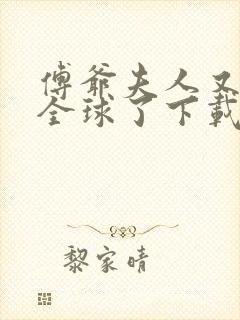 傅爺夫人又
全球了下載
黎家晴